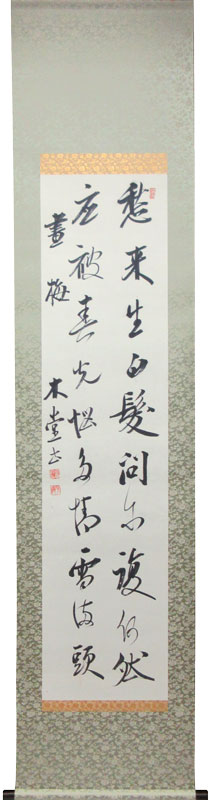 愁来生白髮問尓復何然
应被春光悩多情雪満頭
畫梅 木堂书